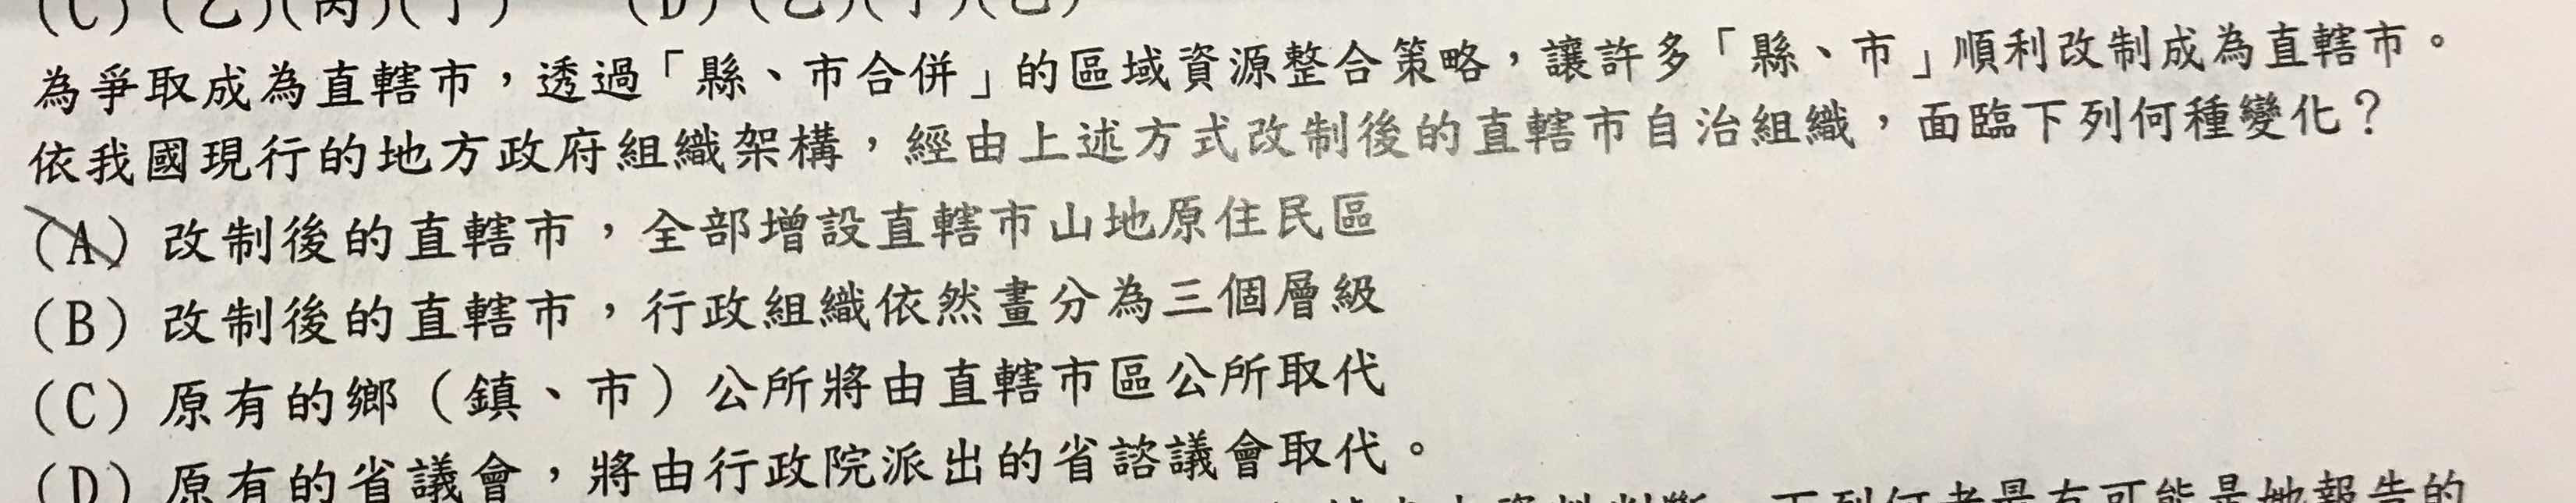 (C) (乙)(丙)(丁) (D) (乙)(丁)(己)
為爭取成為直轄市，透過「縣、市合併」的區域資源整合策略，讓許多「縣、市」順利改制成為直轄市。
依我國現行的地方政府組織架構，經由上述方式改制後的直轄市自治組織，面臨下列何種變化？
(A) 改制後的直轄市，全部增設直轄市山地原住民區
(B) 改制後的直轄市，行政組織依然畫分為三個層級
(C) 原有的鄉（鎮、市）公所將由直轄市區公所取代
(D) 原有的省議會，將由行政院派出的省諮議會取代。
下列何者最有可能是她報告的